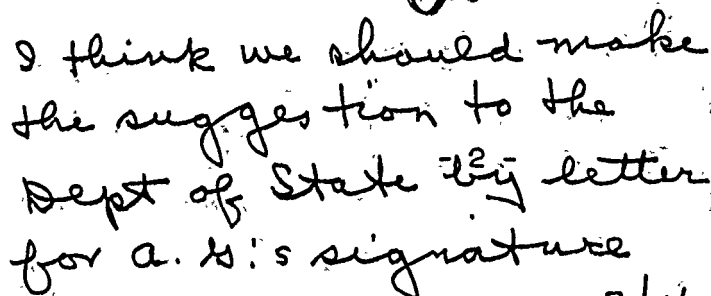 I think we should make
the suggestion to the
Dept of State by letter
for A.G.'s signature